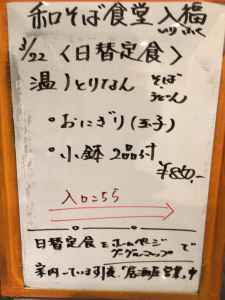 和そば食堂 入福
いりふく
3/22 〈日替定食〉
温）とりなん そば うどん
・おにぎり(玉子)
・小鉢 2品付
¥850,-
入口こちら
日替定食をホームページ グーグルマップ で
案内しています 夜「居酒屋営業」中